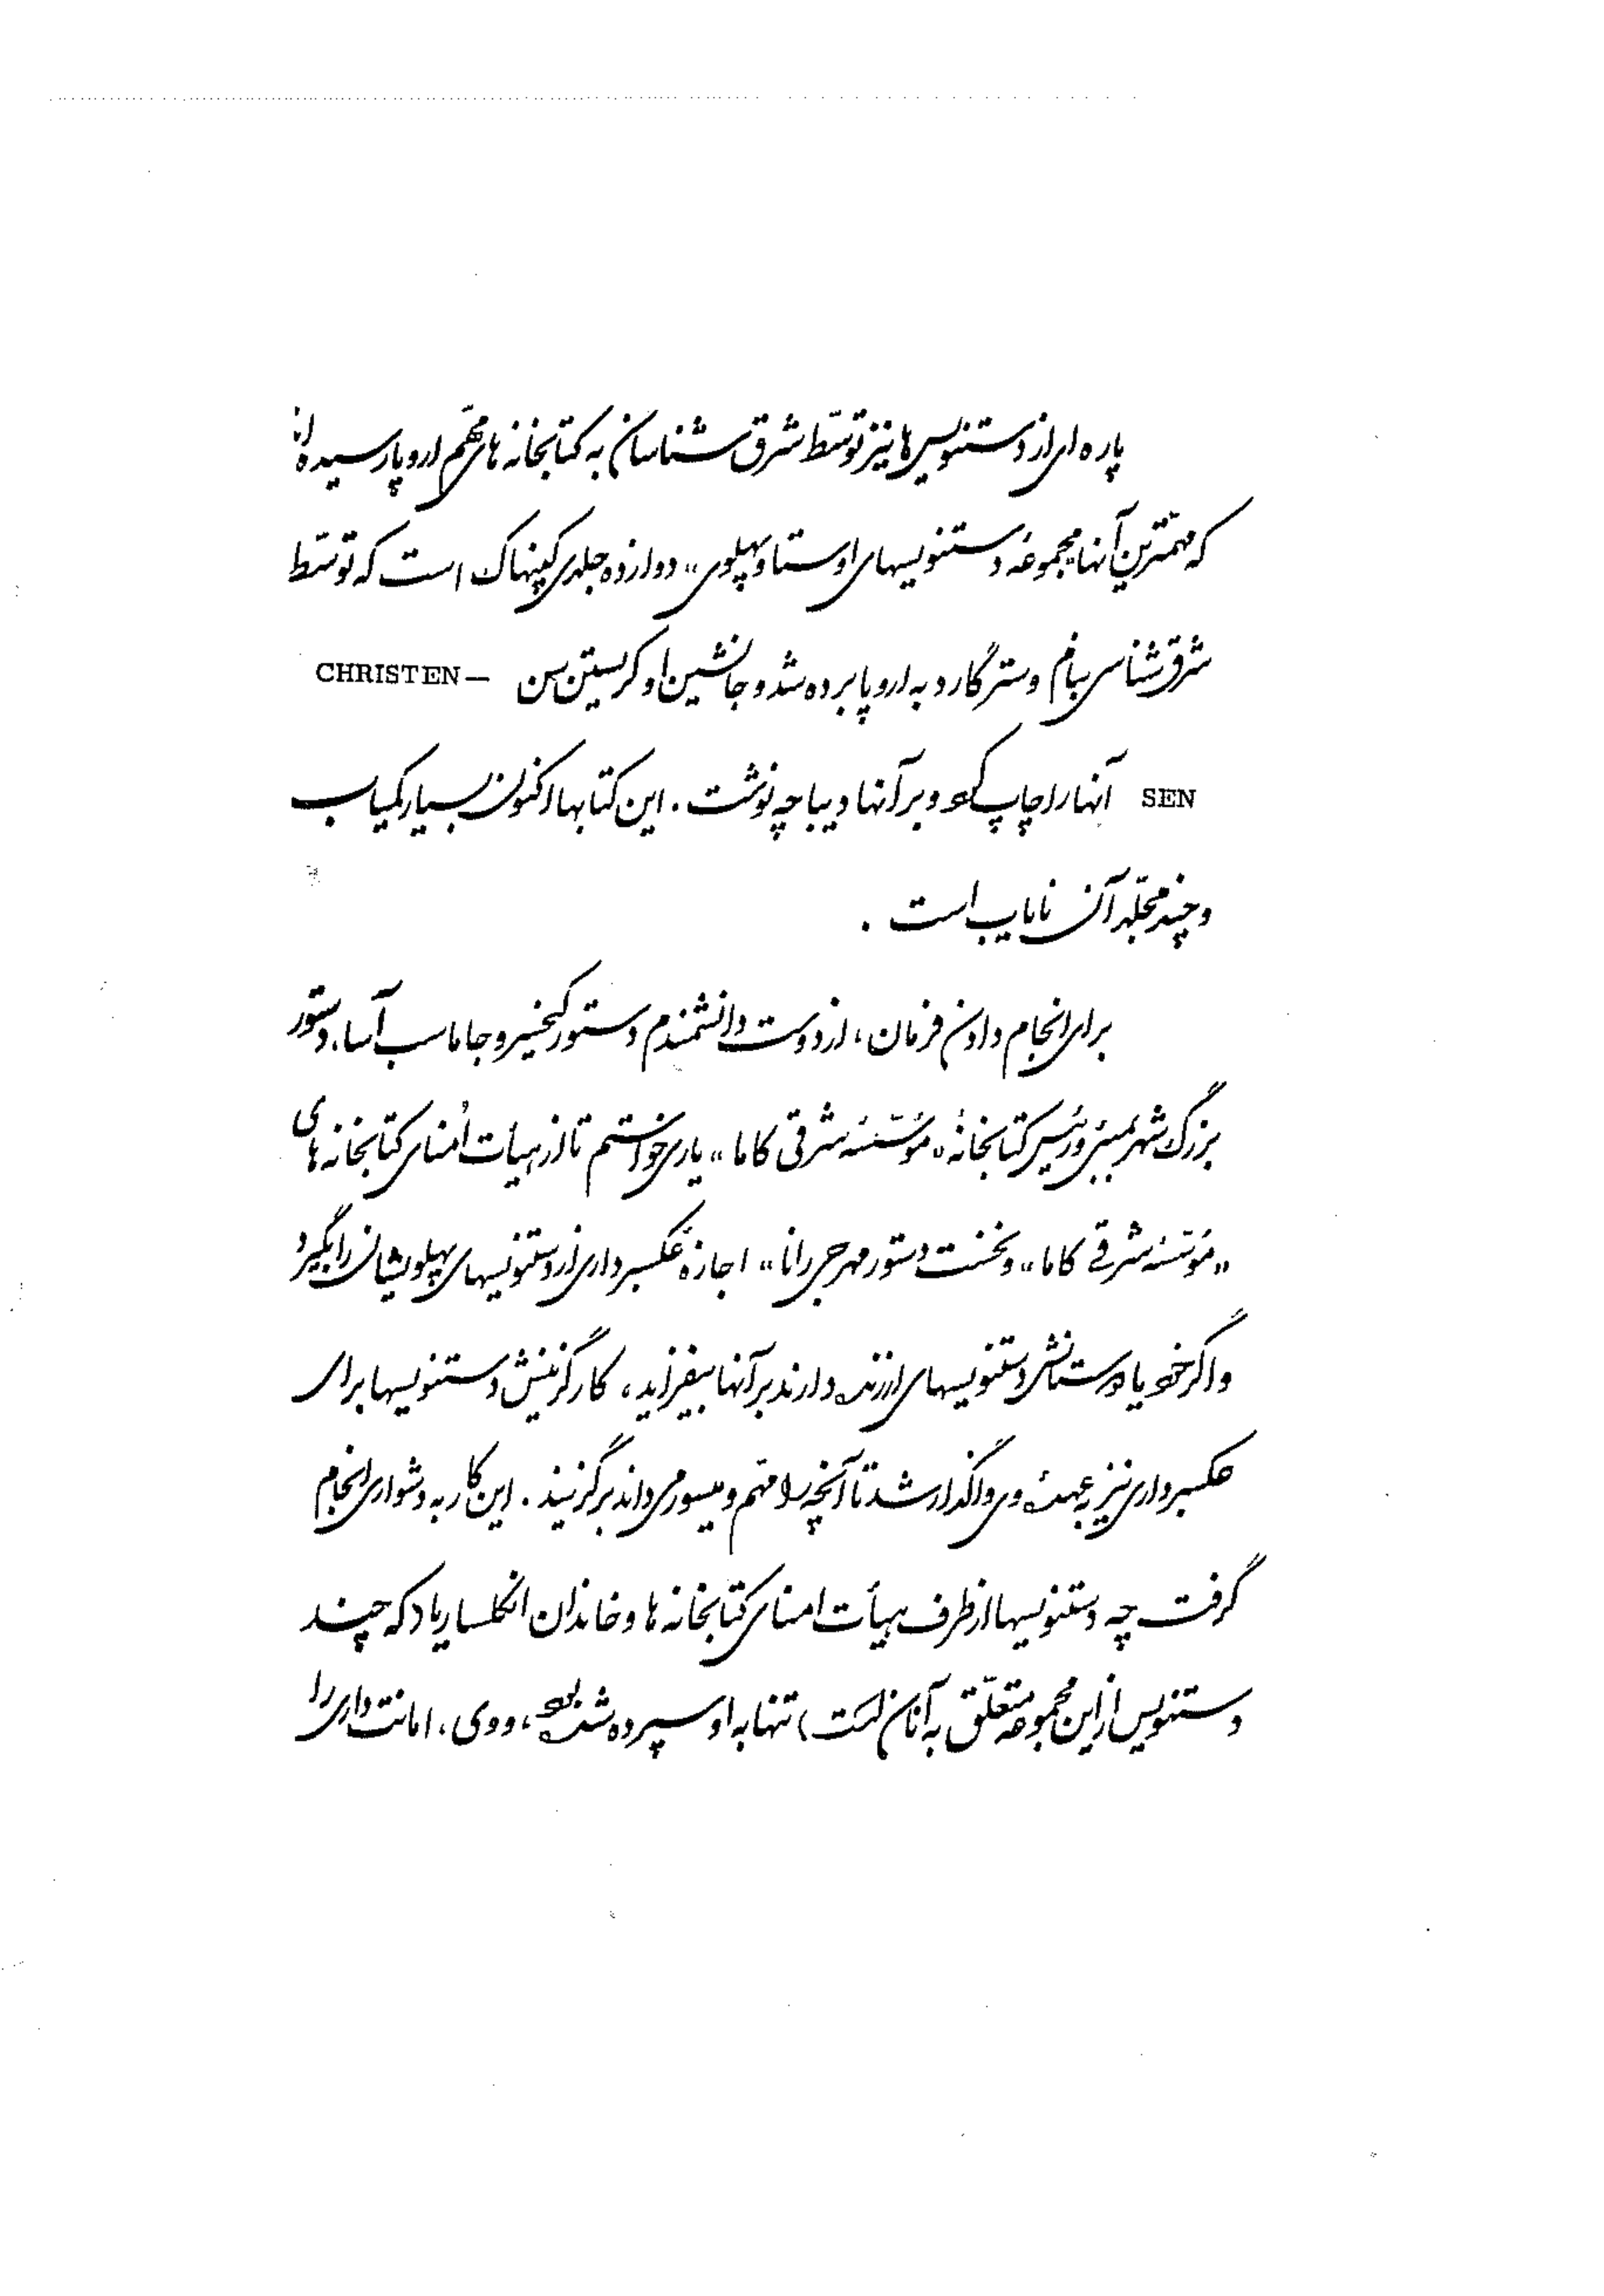 پاره ای از دستنویس ها نیز توسّط شرق شناسان به کتابخانه های مهّم اروپا رسیده
که مهمّترین آنها مجموعهٔ دستنویسهای اوستا و پهلوی،، دوازده جلدی کپنهاک است که توسّط
شرق شناسی بنام وسترگارد به اروپا برده شد و جانشین او کریستن سن CHRISTEN —
SEN آنها را چاپ کرد و بر آنها دیباچه نوشت . این کتابها اکنون بسیار کمیاب
و چند مجلّد آن نایاب است .
برای انجام دادن فرمان ، از دوست دانشمندم دستور کیخسرو جاماسب آسا ، دستور
بزرگ شهر بمبئی و رئیس کتابخانهٔ ،، مؤسّسهٔ شرقی کاما ،، یاری خواستم تا از هیأت اُمنای کتابخانه های
،، مؤسّسهٔ شرقی کاما ،، و نخست دستور مهرجی رانا ،، اجازهٔ عکسبرداری از دستنویسهای پهلویشان را بگیرد
و اگر خود یا دوستانش دستنویسهای ارزنده دارند بر آنها بیفزاید ، کار گزینش دستنویسها برای
عکسبرداری نیز به عهدهٔ وی واگذار شد تا آنچه را مهّم و میسور می داند برگزیند . این کار به دشواری انجام
گرفت چه دستنویسها از طرف هیأت امنای کتابخانه ها و خاندان انکلساریا ( که چند
دستنویس از این مجموعه متعلّق به آنان است ) تنها به او سپرده شده بود ، و وی ، امانت داری را